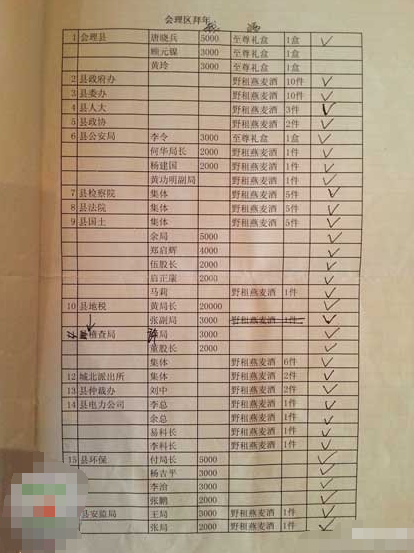 会理区拜年
1 会理县 唐晓兵 5000 至尊礼盒 1盒
顾元镍 3000 至尊礼盒 1盒
黄玲 3000 至尊礼盒 1盒
2 县政府办 野租燕麦酒 10件
3 县委办 野租燕麦酒 10件
4 县人大 野租燕麦酒 3件
5 县政协 野租燕麦酒 2件
6 县公安局 李令 3000 至尊礼盒 1盒
何华局长 2000 野租燕麦酒 1件
杨建国 2000 野租燕麦酒 1件
黄功明副局 野租燕麦酒 1件
7 县检察院 集体 野租燕麦酒 5件
8 县法院 集体 野租燕麦酒 5件
9 县国土 集体 野租燕麦酒 5件
余局 5000
郑启辉 4000
伍股长 2000
启正康 2000
马莉 野租燕麦酒 1件
10 县地税 黄局长 20000
张副局 3000 野租燕麦酒 1件
稽查局 局 3000
董股长 2000
集体 野租燕麦酒 6件
12 城北派出所 集体 野租燕麦酒 2件
13 县仲裁办 刘中 野租燕麦酒 2件
14 县电力公司 李总 野租燕麦酒 1件
余总 野租燕麦酒 1件
易科长 野租燕麦酒 1件
李科长 野租燕麦酒 1件
15 县环保 付局长 5000
杨吉平 3000
李治 3000
张鹏 2000
县安监局 王局 3000 野租燕麦酒 1件
张局 2000 野租燕麦酒 1件